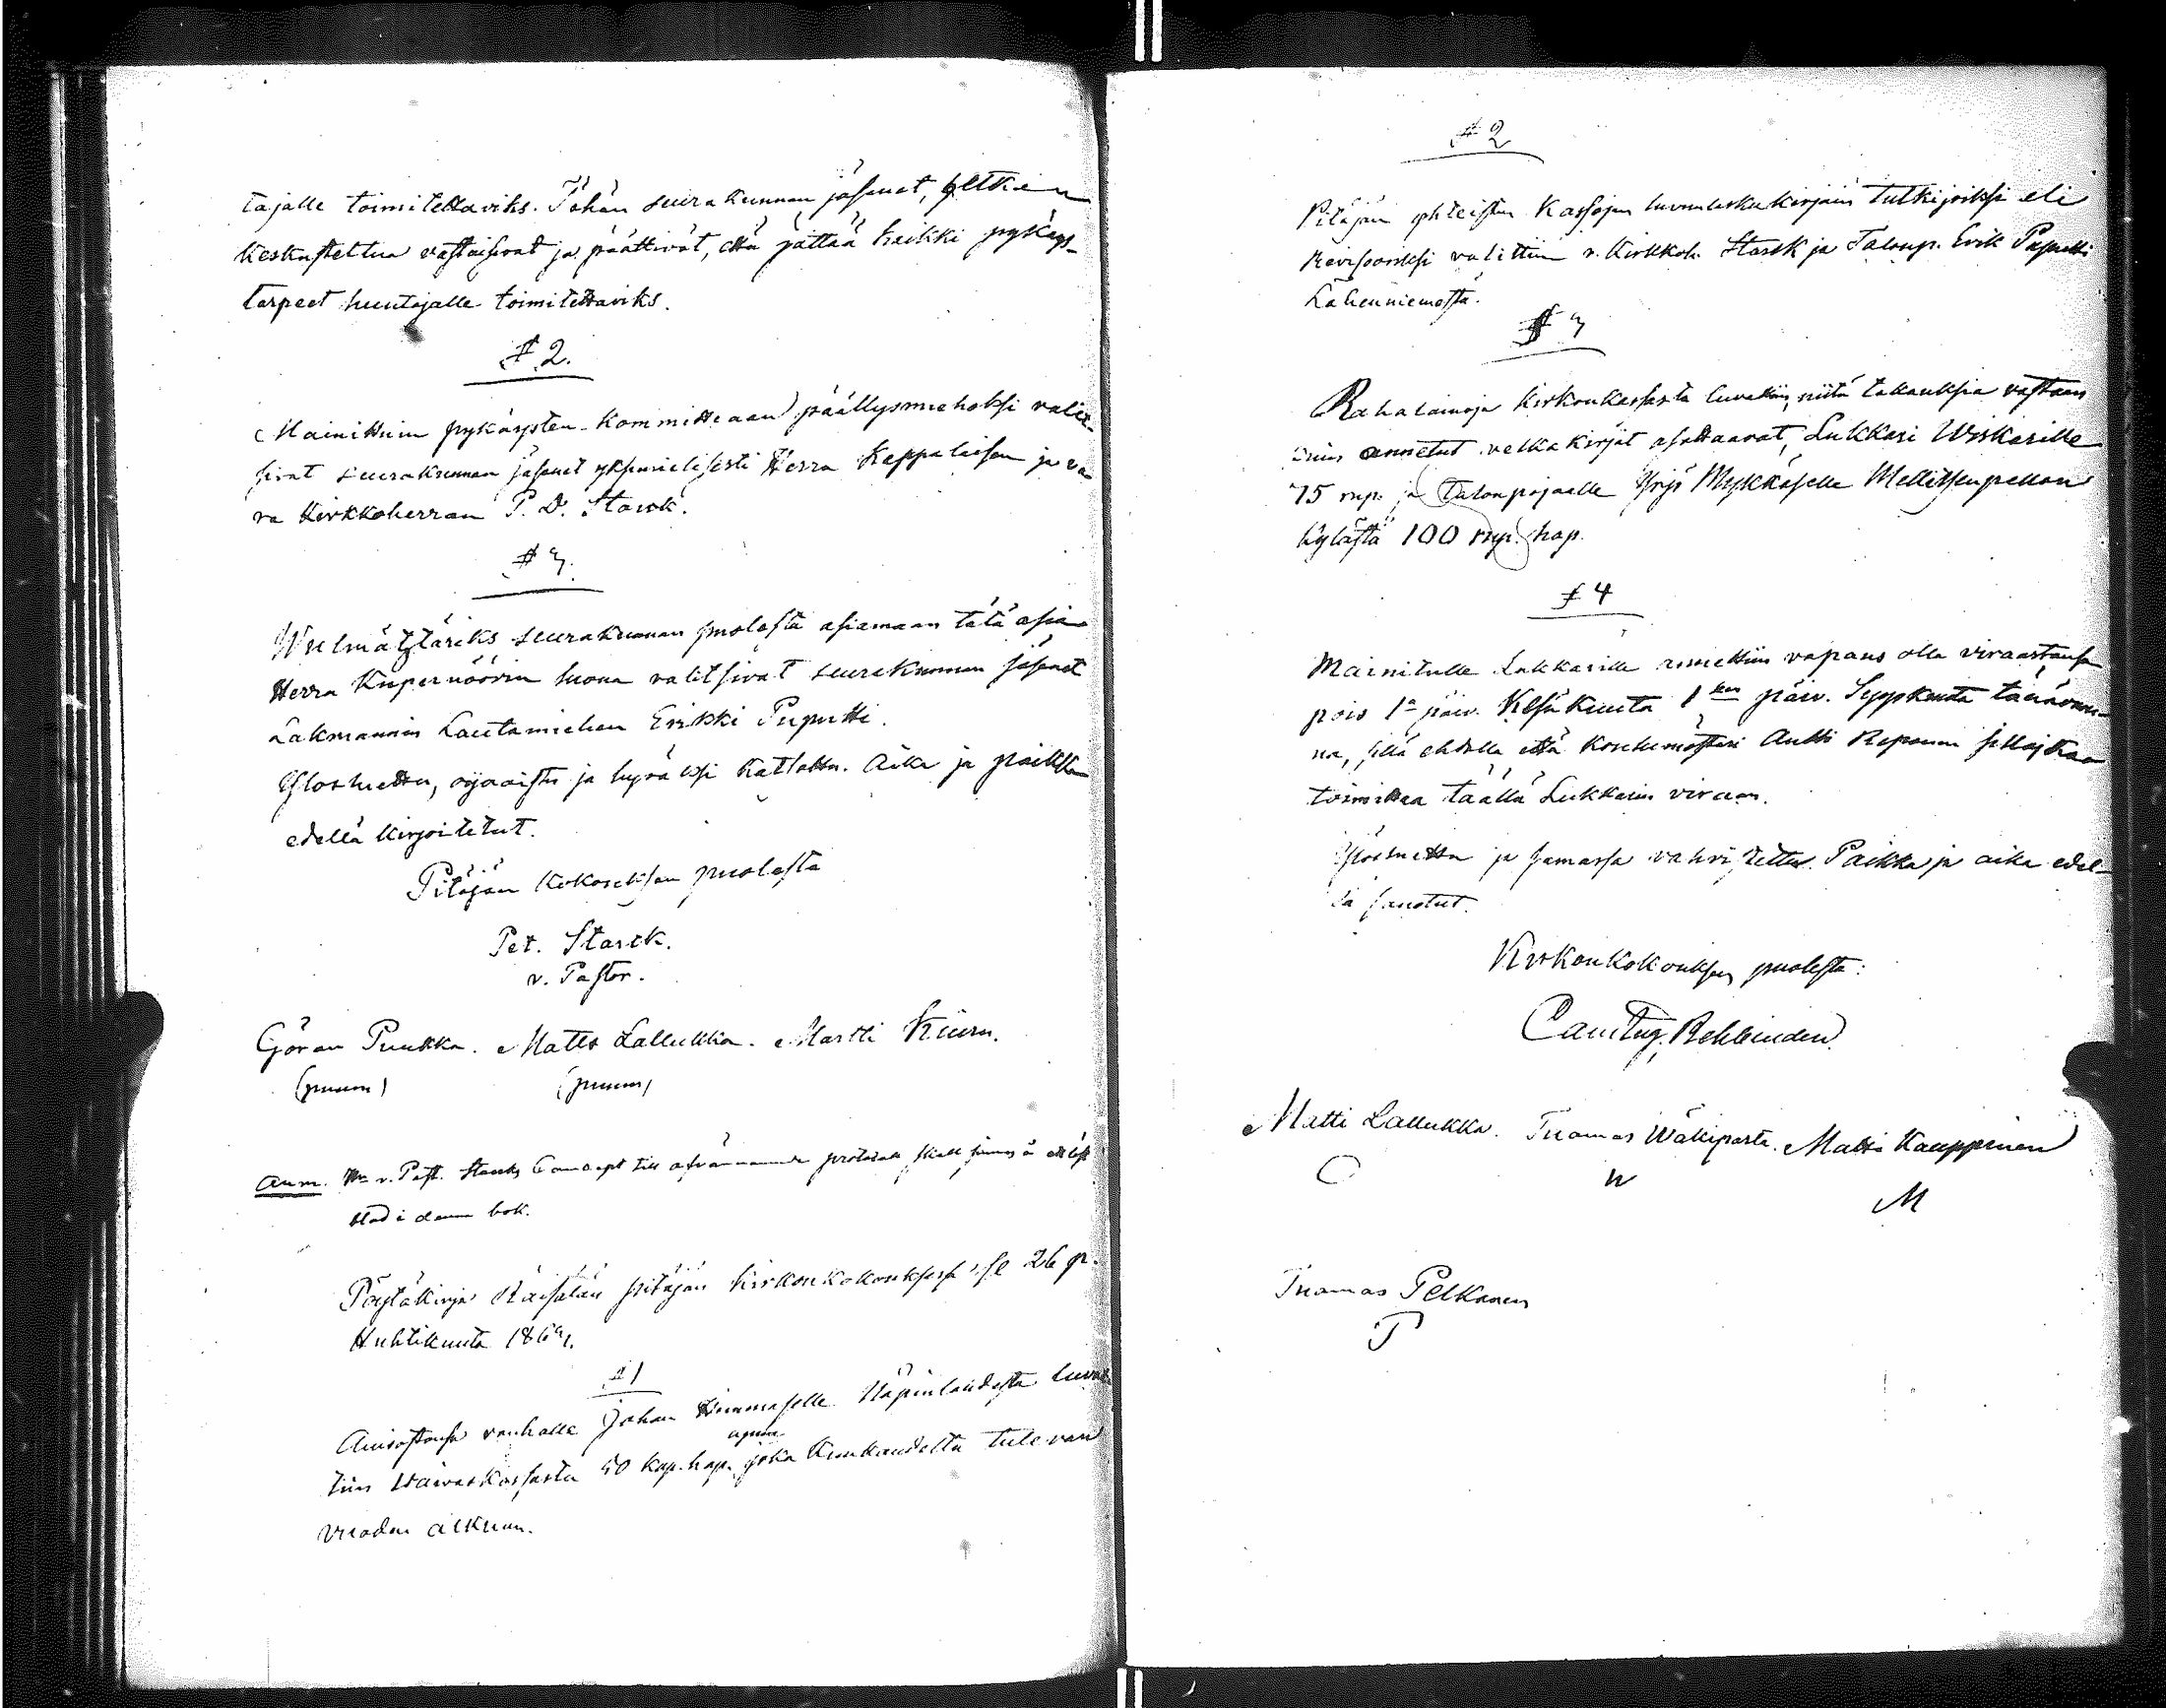 tajalle toimitettaviks. Tähän seurakunnan jäsenet, hetken
keskusteltua vastaisivat ja päättivät, että jättää kaikki pykäys-
tarpeet huutajalle toimitettaviks.
§ 2.
Mainittuin pykäysten kommitteaan päällysmieheksi valit-
sivat seurakunnan jäsenet yksimielisesti Herra Kappalaisen ja va-
ra Kirkkoherran P. D. Starck.
§ 3.
seurakunnan puolesta asiamaan tätä asia
Herra Kupernöörin luona valitsivat seurakunnan jäsenet
Lakmannin Lautamiehen Erikki Puputti.
Ylösluettu, ojaaistu ja hyväksi katsottu. Aika ja paikka
edellä kirjoitetut.
Pitäjän kokouksen puolesta
Pet. Starck.
v. Pastor.
Göran Puukka. Matts Lallukka. Martti Kiuru.
(puum) (puum)
Anm. v. Past. Starcks Concept till ofvannämnde protokoll skall finnas å
blad i denna bok.
Pöytäkirja Räisälän pitäjän kirkonkokouksessa se 26 p.
Huhtikuuta 1864.
§ 1
vanhalle Johan Himmaselle Näpinlaidesta luvat-
apua
tiin Waivaskassasta 50 kop. hop. joka kuukaudelta tulevan
vuoden alkuun.
§ 2
Pitäjän yhteisten kassojen luvunlasku kirjain tutkijoiksi eli
Revisooriksi valittiin v. Kirkkoh. Starck ja Talonp. Erik Puputti
Läheuniemestä.
§ 3
Rahalainoja kirkonkassasta luvattiin, niitä takauksia vastaan
kuin annetut velkakirjat osottaavat, Lukkari Wiskarille
75 rup. ja talonpojaalle Yrjö Mykkäselle Mellitsenpellon
kylästä 100 rup. hop.
§ 4
Mainitulle Lukkarille annettiin vapaus olla virastansa
pois 1ä päiv. Kesäkuuta 1een päiv. Syyskuuta tänävuon-
na, sillä ehdolla että Koulumestari Antti Reponen sillaikaa
toimittaa täällä Lukkarin viraan.
Ylösluettu ja samassa vahvistettu. Paikka ja aika edel-
lä sanotut.
Kirkonkokouksen puolesta:
Rehbinder.
Matti Lallukka. Tuomas Wäkiparta. Matti Kauppinen
C W M
Tuomas Pelkonen
T